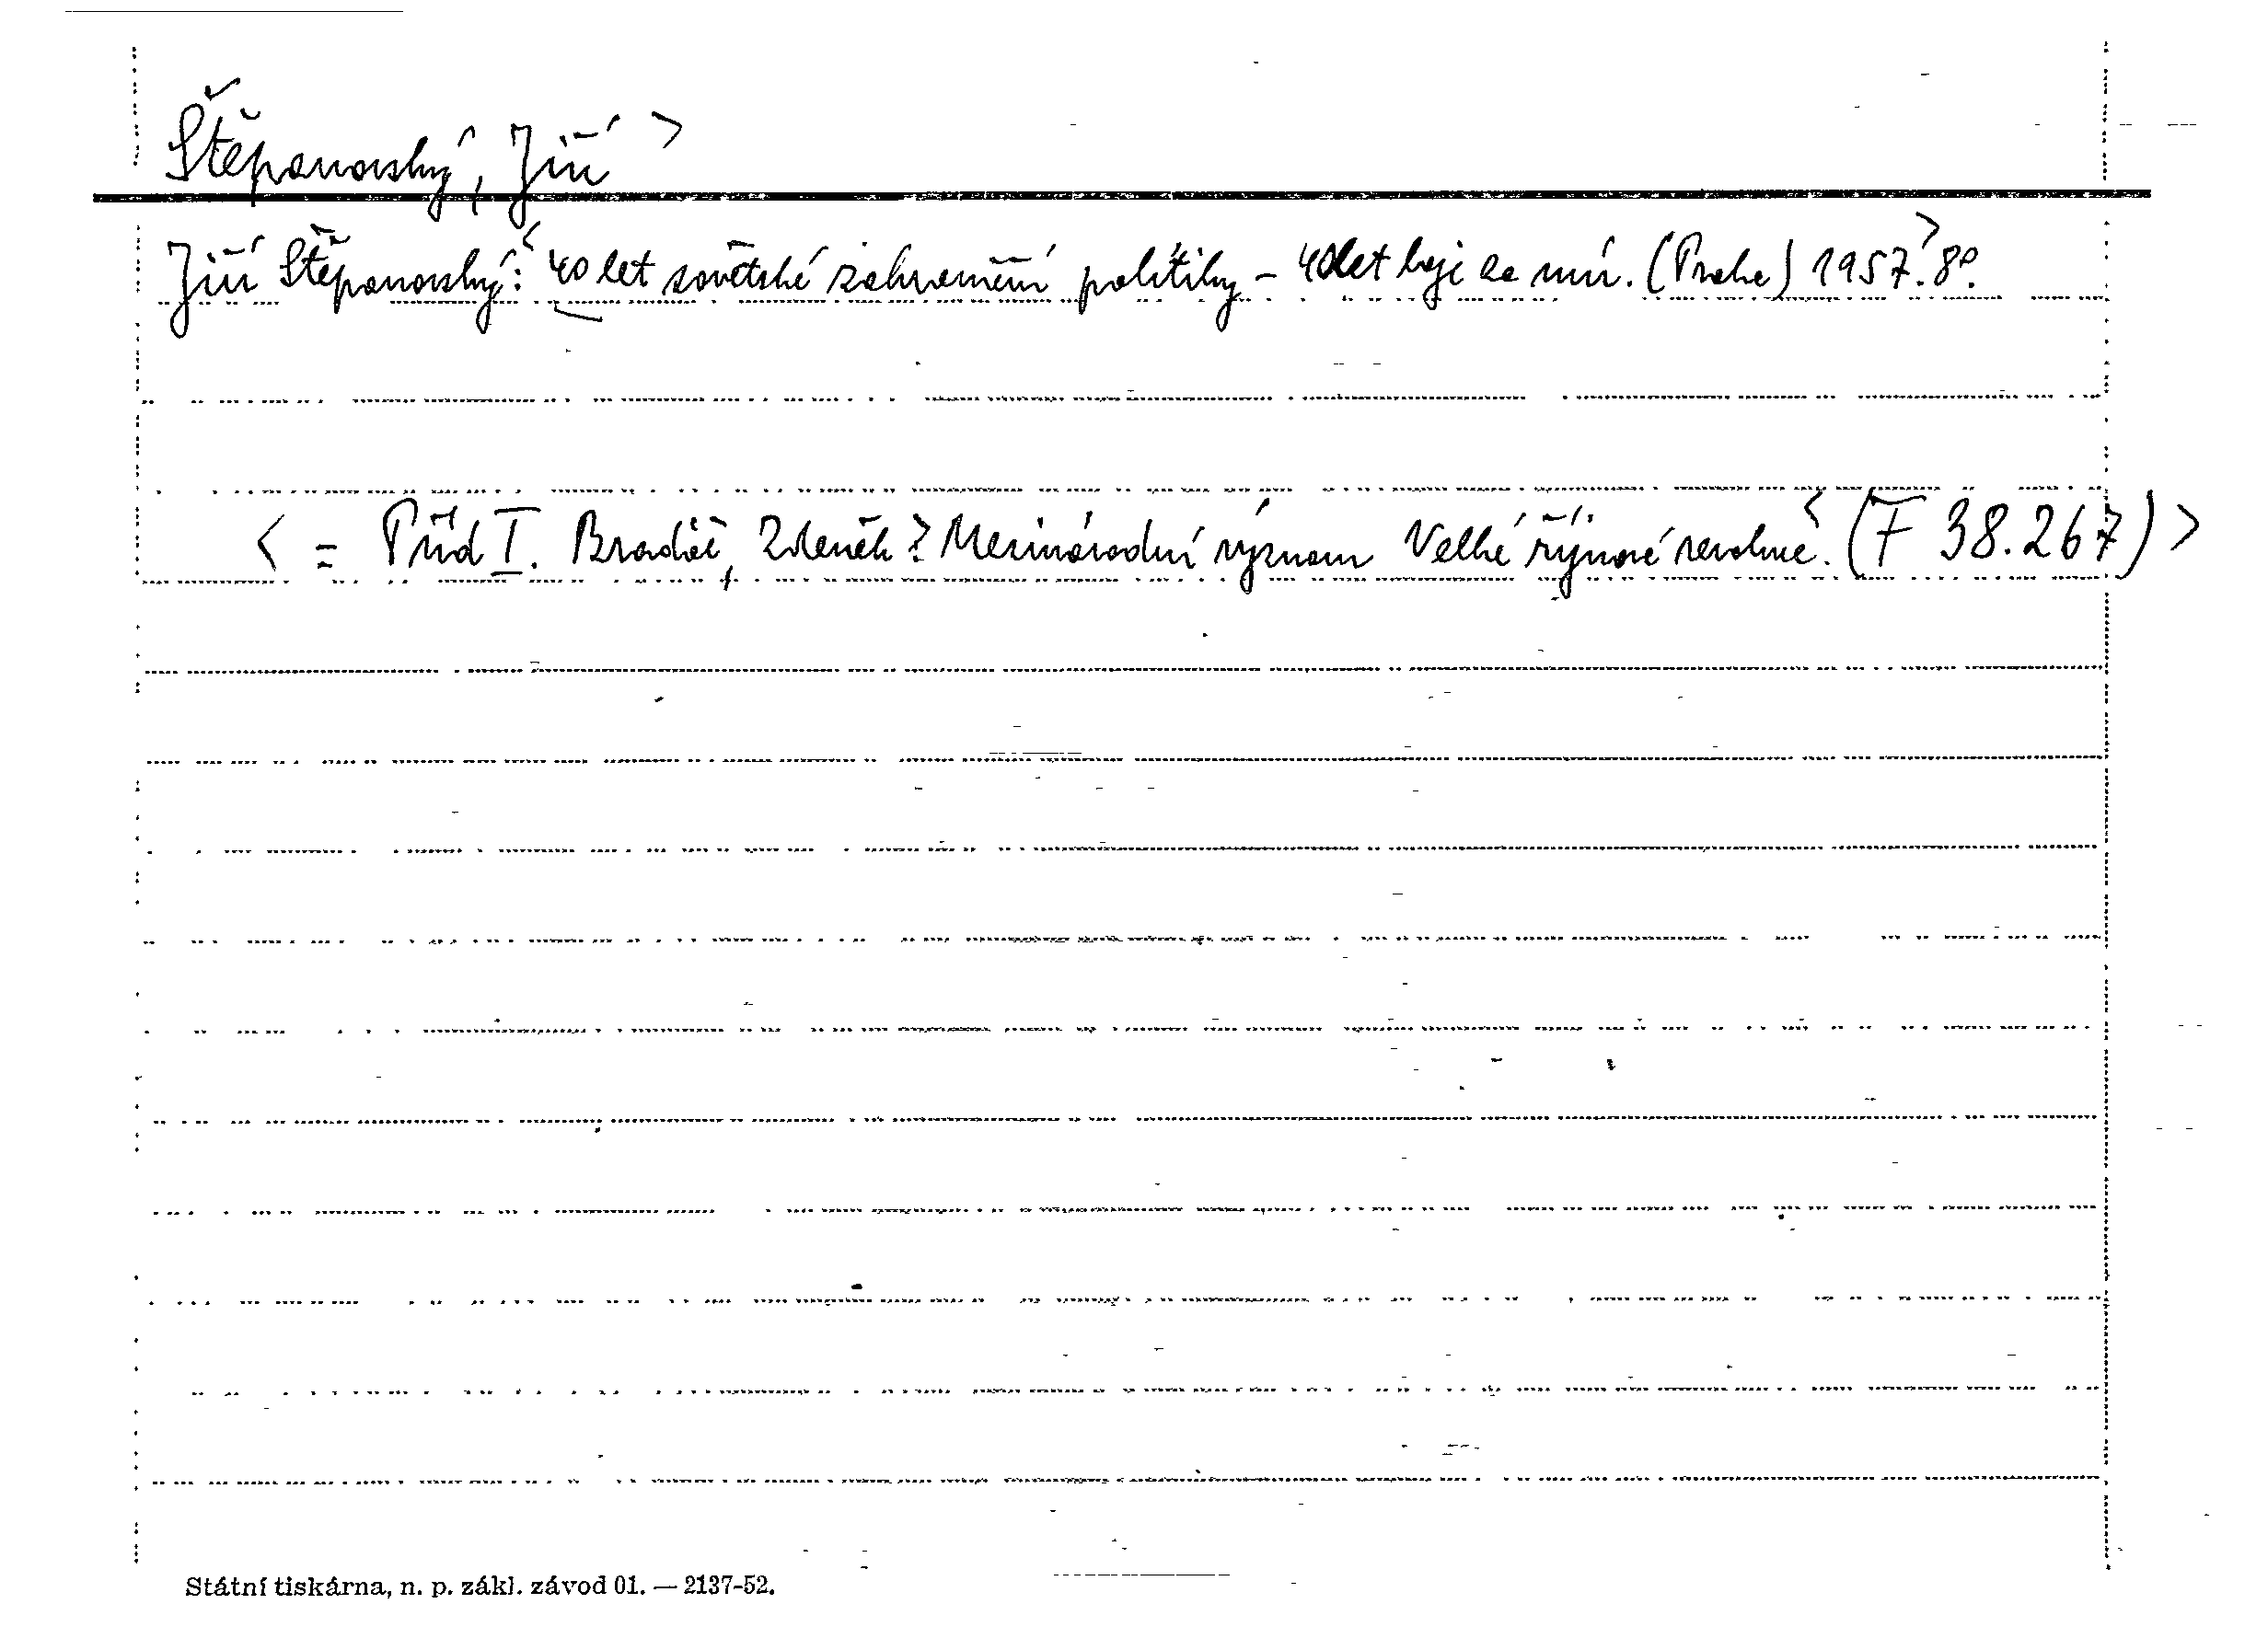 Štěpanovský, Jiří >
Jiří Štěpanovský: <40 let sovětské zahraniční politiky - 40 let boje za mír. (Praha) 1957.> 8°.
< = Příd I. Bradáč, Zdeněk: Mezinárodní význam Velké říjnové revoluce.< (F 38.267) >
Státní tiskárna, n. p. zákl. závod 01. — 2137-52.